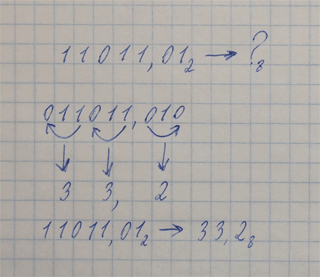 11011,01₂ → ?₈
011011,010
3 3, 2
11011,01₂ → 33,2₈